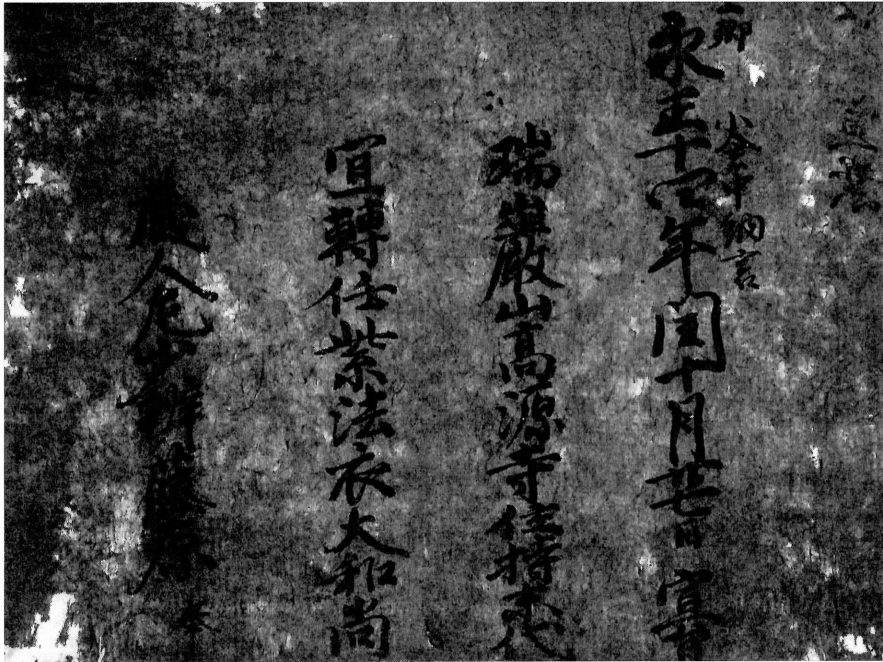 上卿 小倉中納言
永正十四年閏十月廿七日 宣旨
瑞巖山高源寺住持
宜轉任紫法衣大和尚
蔵人右少辨藤原 奉